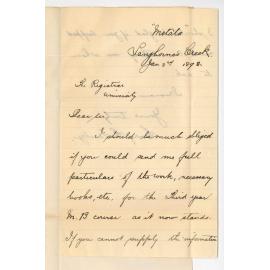 "Metala"
Langhorne's Creek
Jan 3rd 1898.
The Registrar
University
Dear Sir
I should be much obliged
if you could send me full
particulars of the work, necessary
books, etc. for the Third year
M. B course as it now stands.
If you cannot supply the information